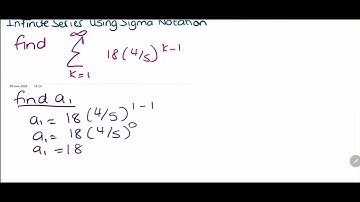 Infinite Series Using Sigma Notation
find ∞ ∑ k=1 18(4/5)^{k-1}
find a₁
a₁ = 18(4/5)^{1-1}
a₁ = 18(4/5)^{0}
a₁ = 18